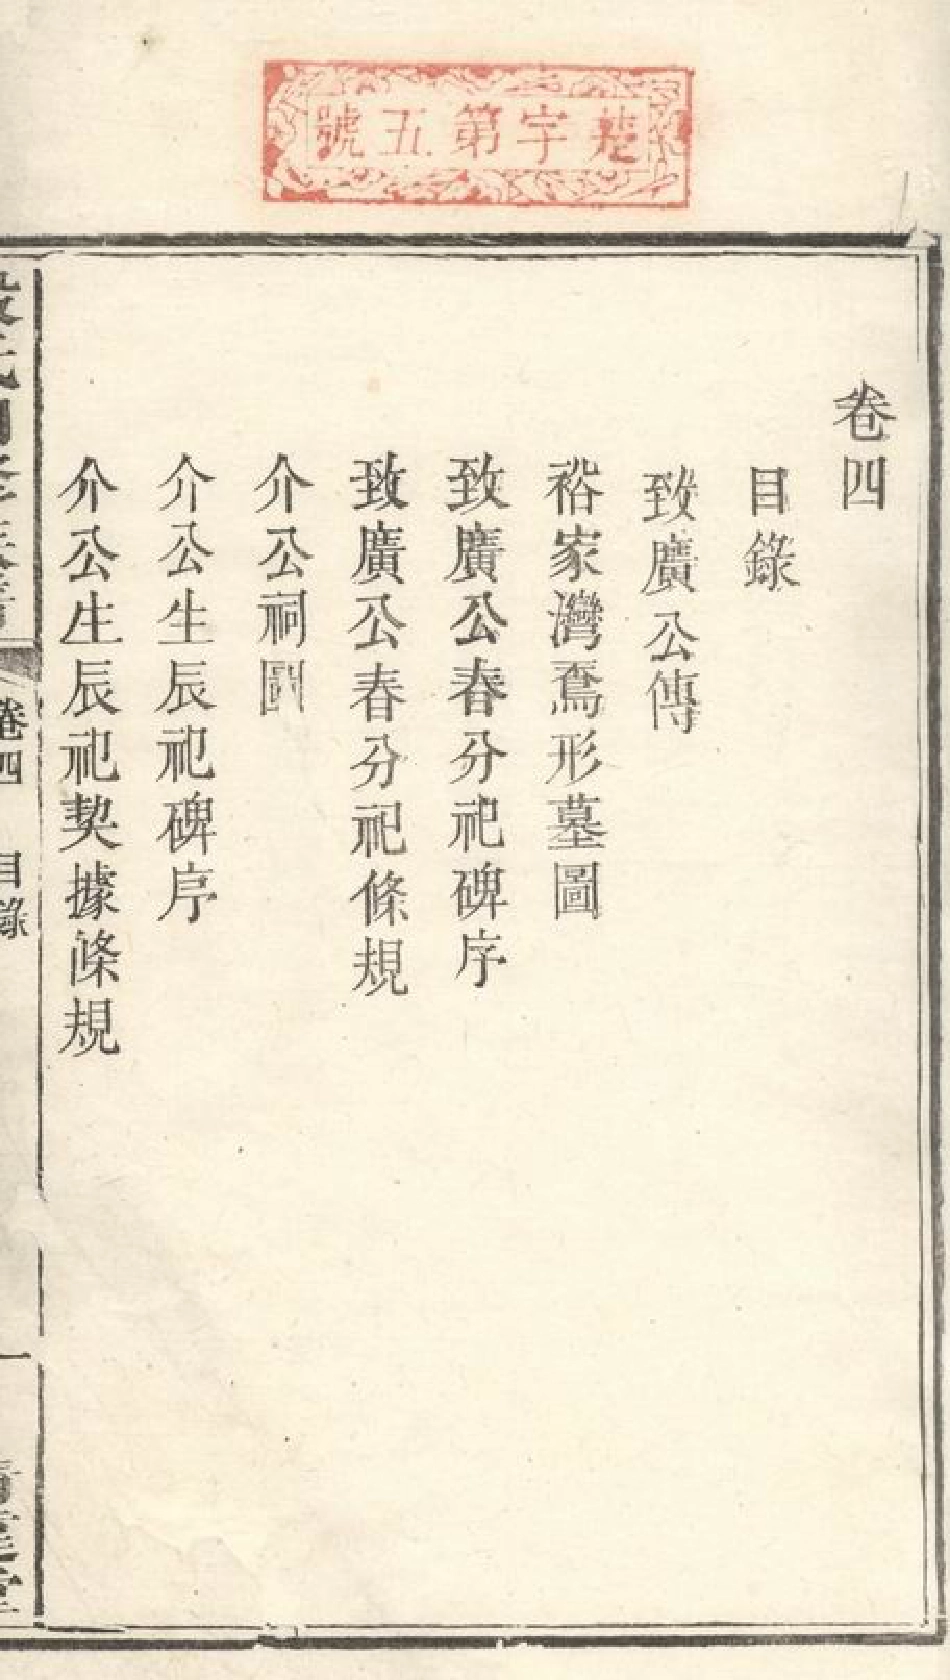 楚字第五號
卷四
目錄
致廣公傳
裕家灣鴌形墓圖
致廣公春分祀碑序
致廣公春分祀條規
介公祠圖
介公生辰祀碑序
介公生辰祀契據條規
卷四 目錄
一